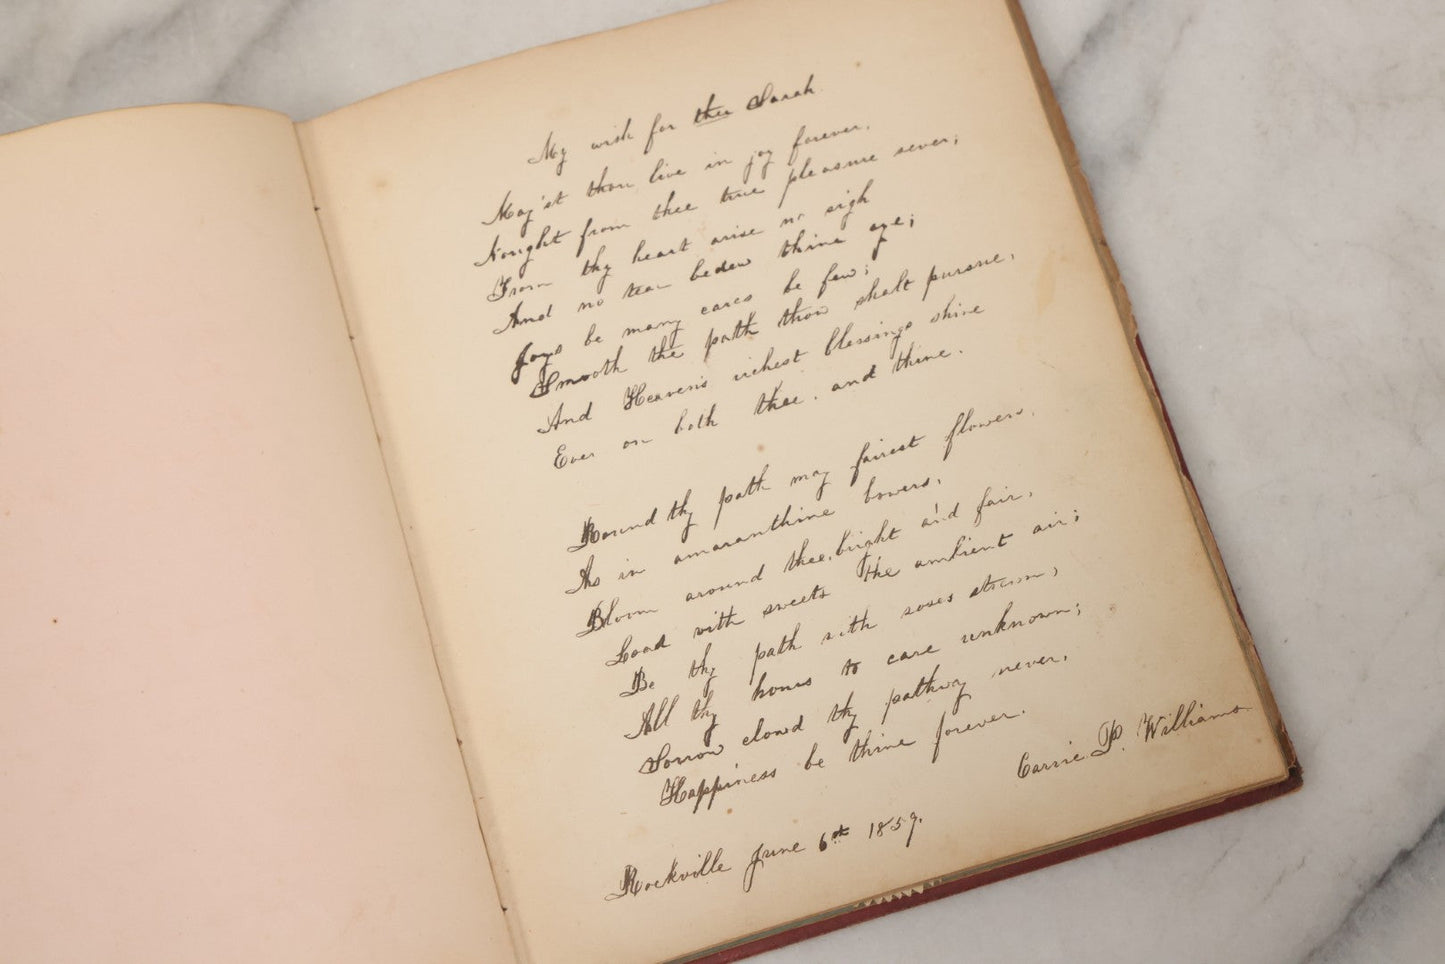 My wish for thee Sarah.
May'st thou live in joy forever,
Nought from thee true pleasure sever;
From thy heart arise no sigh
And no tear bedew thine eye;
Joys be many cares be few;
Smooth the path thou shalt pursue,
And Heaven's richest blessings shine
Ever on both thee and thine.
Round thy path may fairest flowers,
As in amaranthine bowers,
Bloom around thee, bright and fair,
Load with sweets the ambient air;
Be thy path with roses strewn,
All thy hours to care unknown;
Sorrow cloud thy pathway never,
Happiness be thine forever.
Carrie P. Williams
Rockville June 6th 1859.